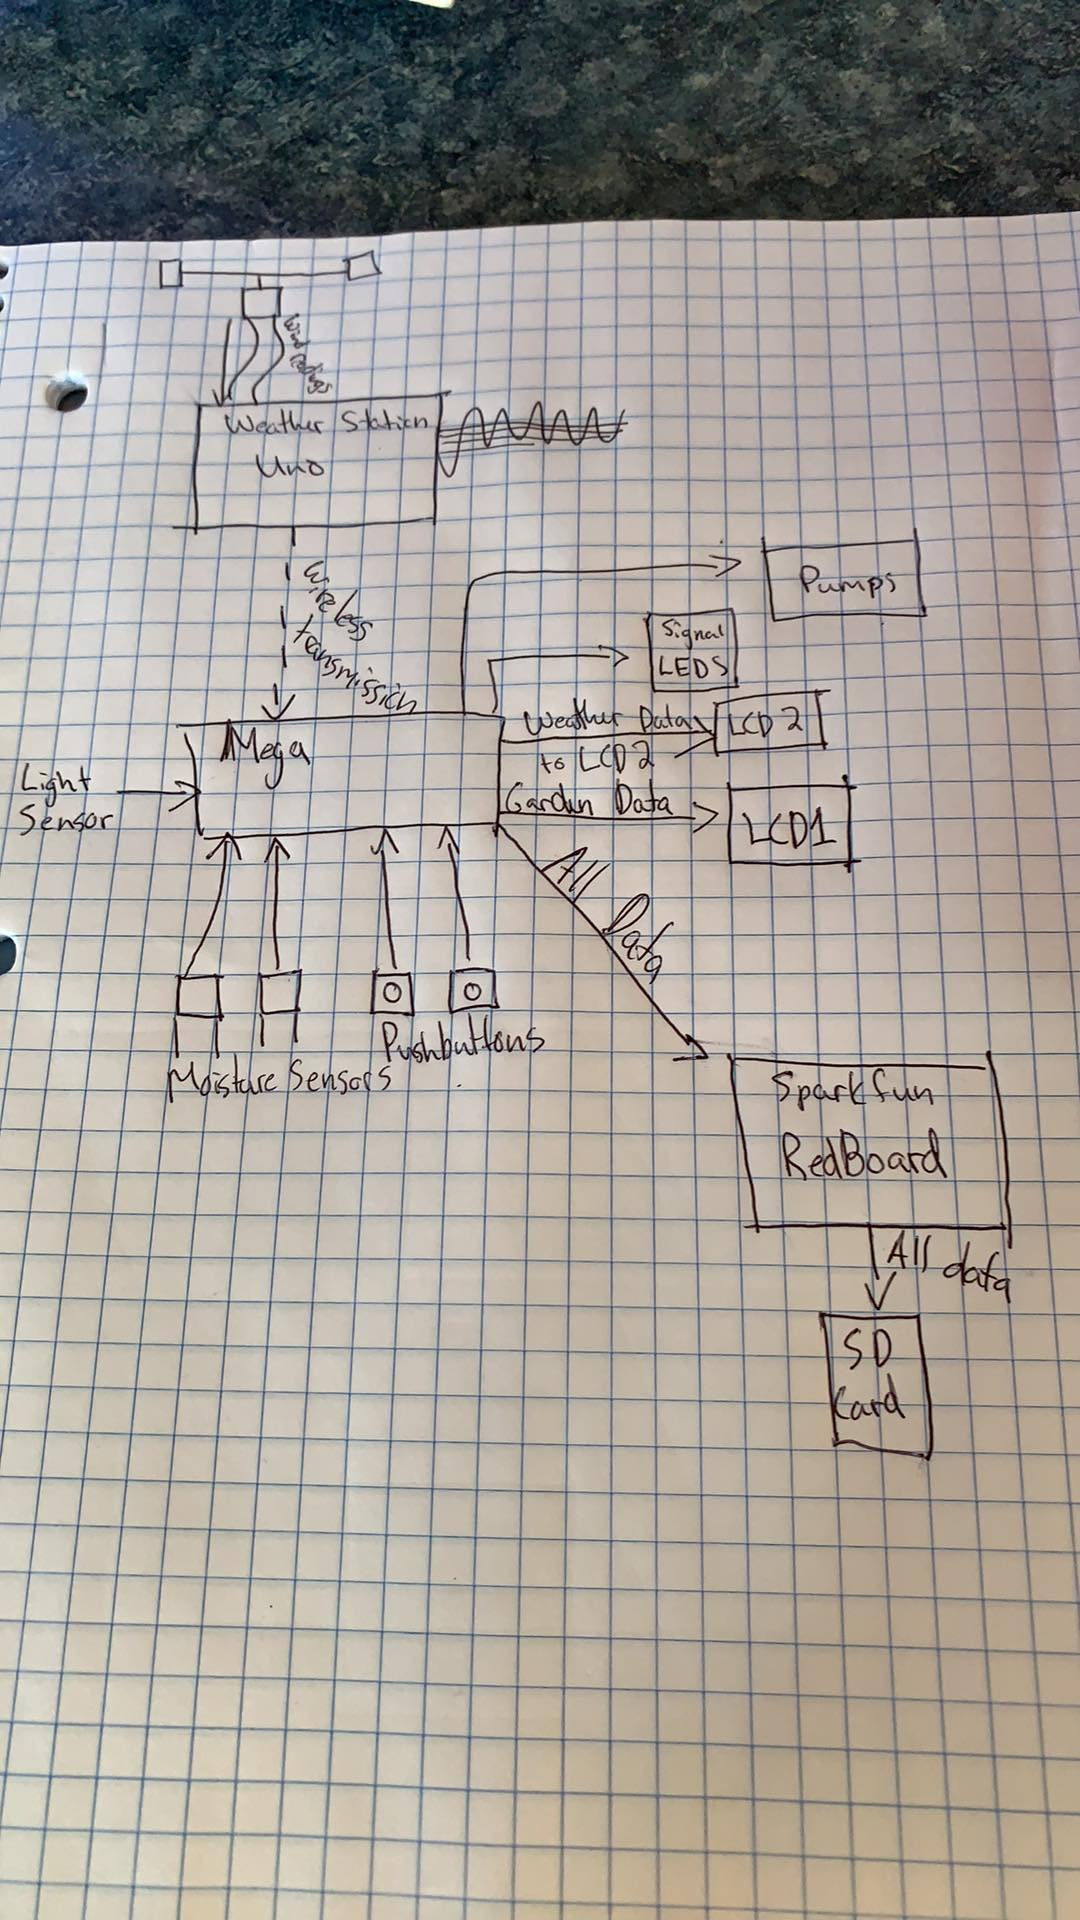 Wind readings
Weather Station
Uno
Wireless
transmission
Pumps
Signal
LEDS
Mega
Weather Data
to LCD2
LCD 2
Light
Sensor
Garden Data
LCD1
All Data
Pushbuttons
Moisture Sensors
Sparkfun
RedBoard
All data
SD
Card